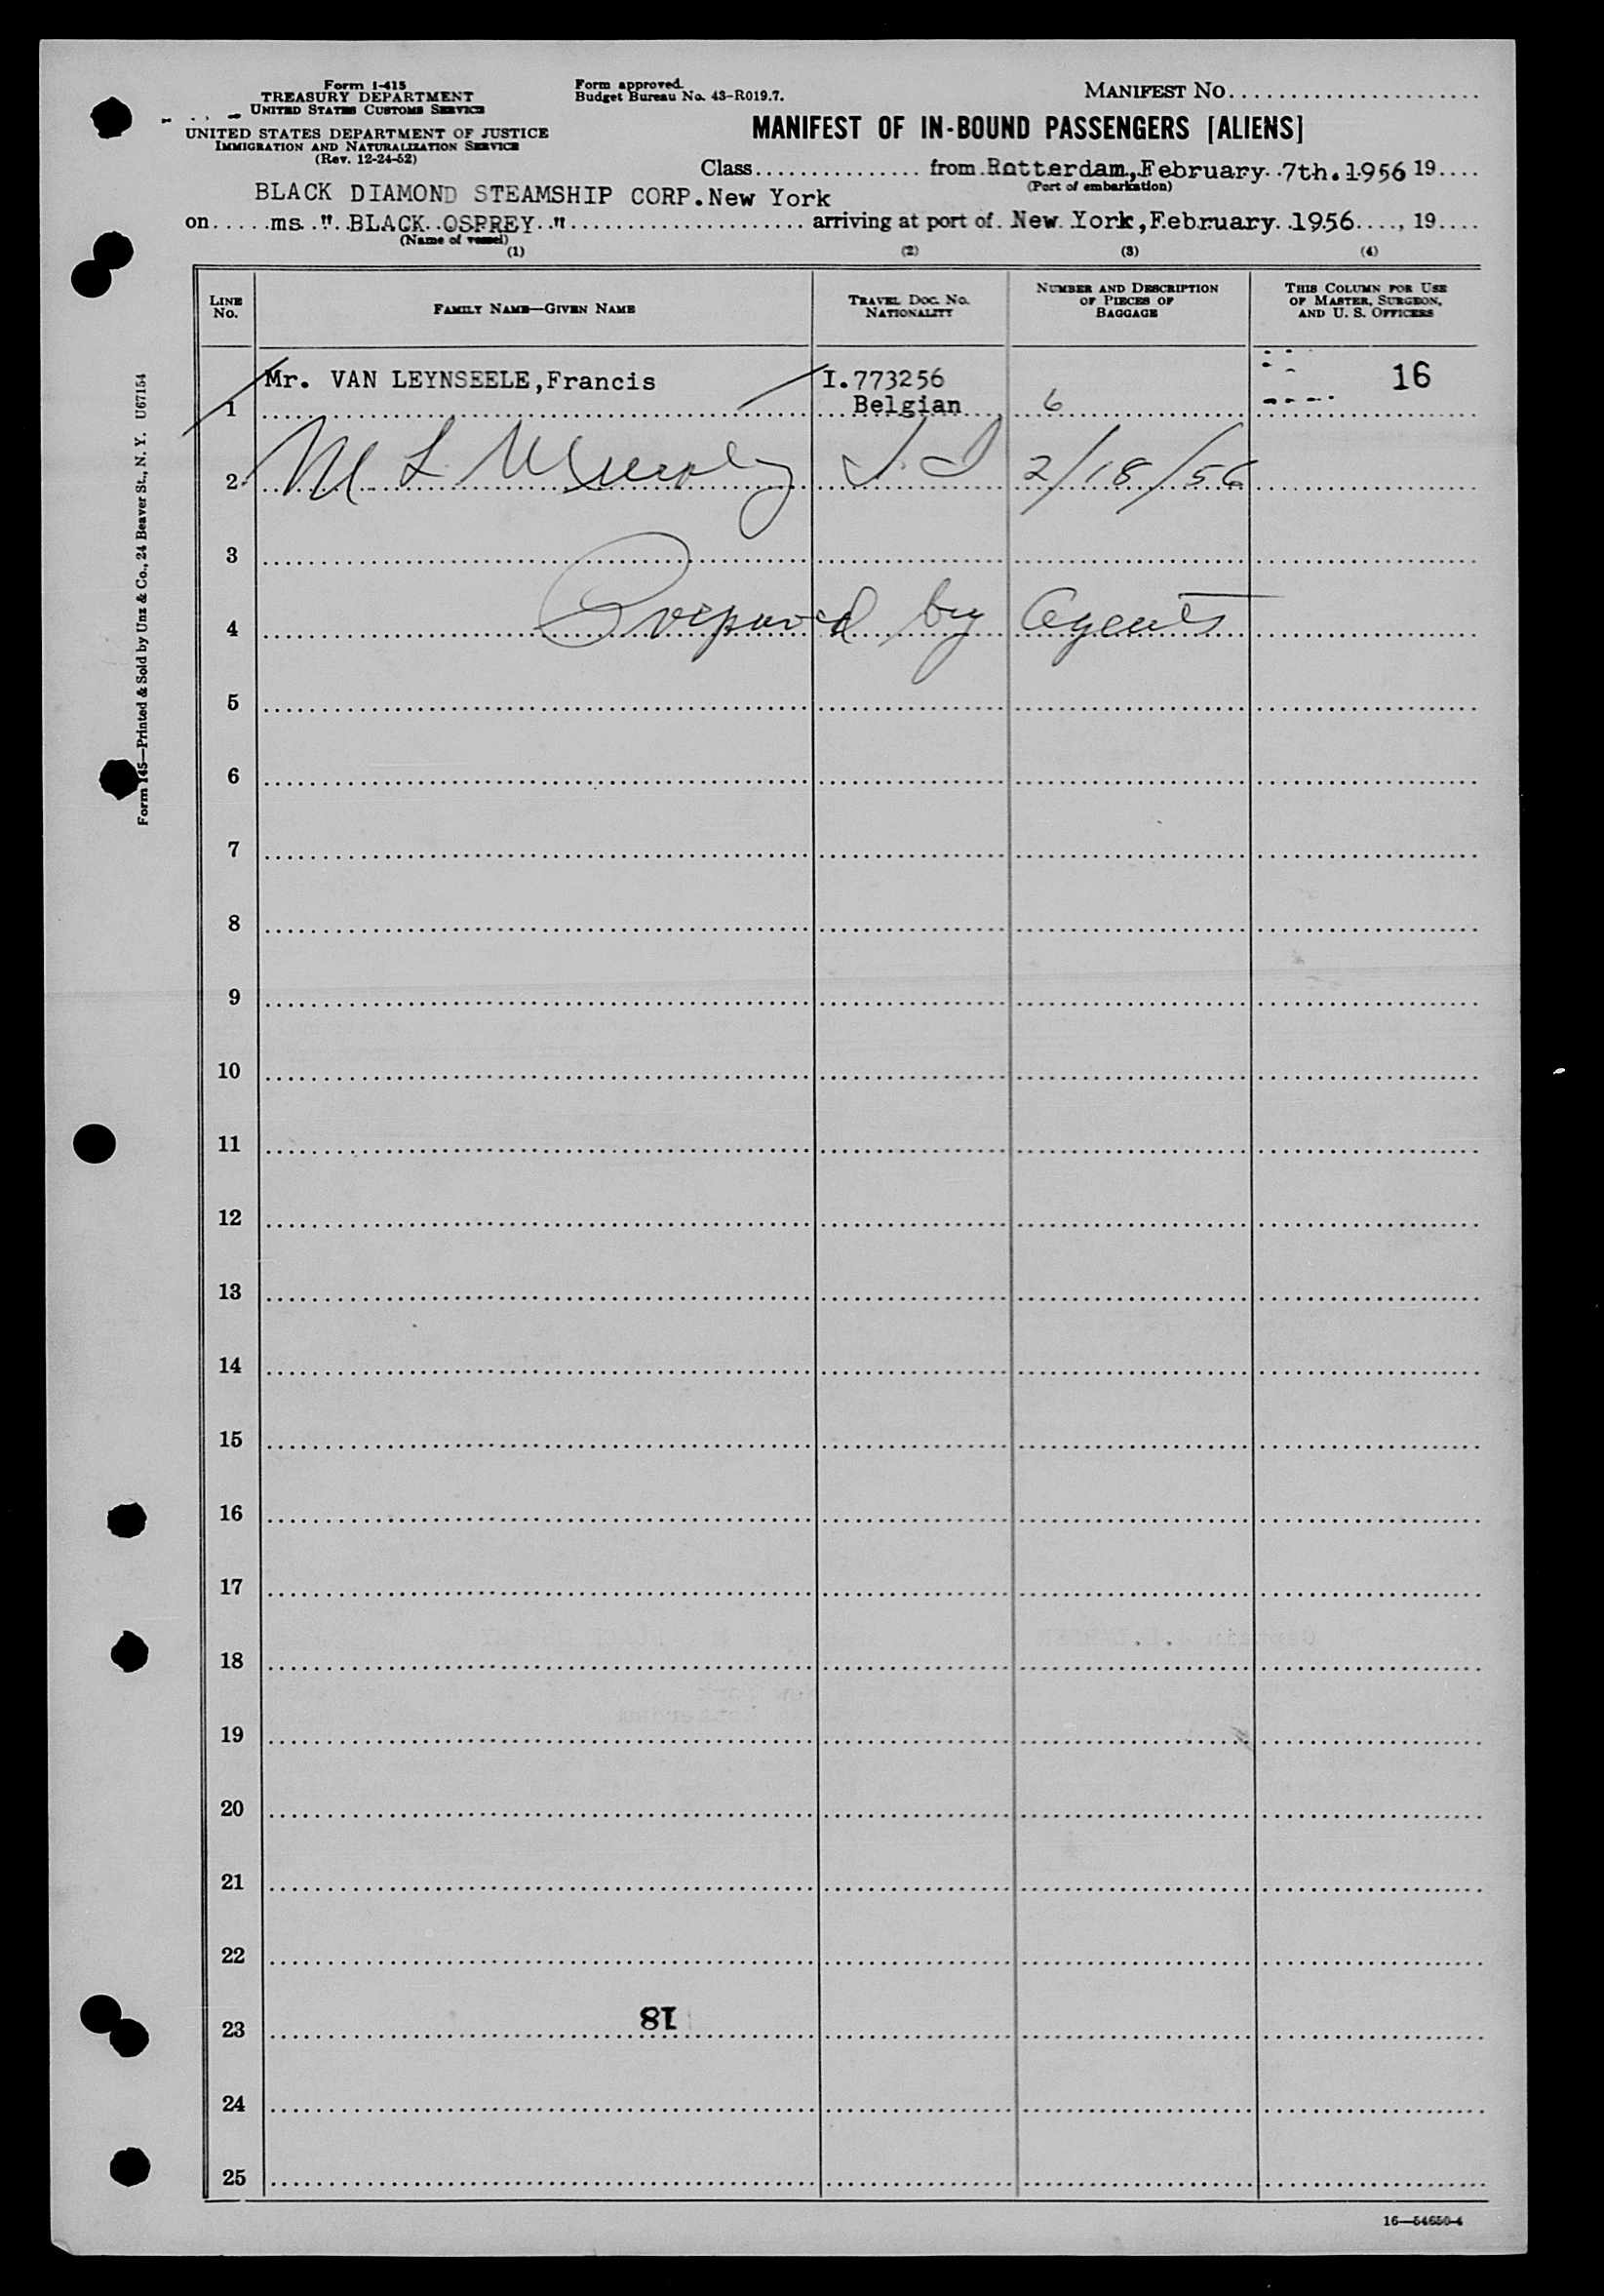 Form I-415
TREASURY DEPARTMENT
UNITED STATES CUSTOMS SERVICE
UNITED STATES DEPARTMENT OF JUSTICE
IMMIGRATION AND NATURALIZATION SERVICE
(Rev. 12-24-52)
Form approved.
Budget Bureau No. 43-R019.7.
MANIFEST NO.
MANIFEST OF IN-BOUND PASSENGERS [ALIENS]
Class from Rotterdam, February 7th. 1956 19
(Port of embarkation)
BLACK DIAMOND STEAMSHIP CORP. New York
on ms " BLACK OSPREY " arriving at port of New York, February 1956, 19
(Name of vessel)
(1) (2) (3) (4)
LINE NO.
FAMILY NAME—GIVEN NAME
TRAVEL DOC. NO. NATIONALITY
NUMBER AND DESCRIPTION OF PIECES OF BAGGAGE
THIS COLUMN FOR USE OF MASTER, SURGEON, AND U. S. OFFICERS
Mr. VAN LEYNSEELE, Francis I.773256 16
1 Belgian 6
2 M L 2/18/56
3
4 Prepared by Agents
5
6
7
8
9
10
11
12
13
14
15
16
17
18
19
20
21
22
18
23
24
25
16—54650-4
Form 145—Printed & Sold by Unz & Co., 24 Beaver St., N. Y. U67154